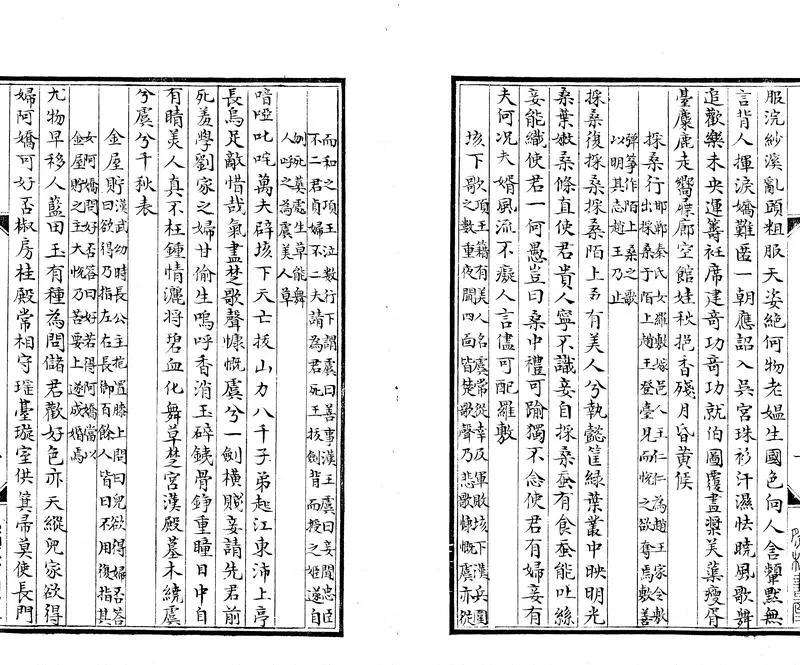 服浣紗溪亂頭粗服天姿絕何物老媼生國色向人含顰默無
言背人揮淚嬌難匿一朝應詔入吳宮珠衫汗濕怯曉風歌舞
追歡樂未央運籌衽席建奇功奇功就伯圖覆盡槳芙蕖瘦胥
臺麋鹿走嚮屧廊空館娃秋挹香殘月昏黃候
採桑行邯鄲秦氏女羅敷嫁邑人王仁仁為趙王家令敷
出採桑于陌上趙王登臺見而悅之欲奪焉敷善
彈箏作陌上桑之歌
以明其志趙王乃止
採桑復採桑採桑陌上多有美人兮執懿筐綠葉叢中映明光
桑葉嫩桑條直使君貴人寧不識妾自採桑蚕有食蚕能吐絲
妾能織使君一何愚豈曰桑中禮可踰獨不念使君有婦妾有
夫何况夫婿風流不癡人言儘可配羅敷
垓下歌項王籍有美人名虞常從幸反軍敗垓下漢兵圍
之數重夜聞四面皆楚歌聲乃悲歌慷慨虞亦從
而和之項王泣數行下謂虞曰善事漢王虞曰妾聞忠臣
不二君貞婦不二夫請為君死王拔劍背而授之姬遂自
刎死葬處生草能舞
人呼之為虞美人草
喑啞叱咤萬夫辟垓下天亡拔山力八千子弟起江東沛上亭
長烏足敵惜哉氣盡楚歌聲慷慨虞兮一劍橫賤妾請先君前
死羞學劉家之婦甘偷生嗚呼香消玉碎鉄骨錚重瞳目中自
有睛美人真不枉鍾情灑將碧血化舞草楚宮漢殿墓木繞虞
兮虞兮千秋表
金屋貯漢武幼時長公主抱置膝上問曰兒欲得婦否答
曰欲得乃指左右長御百餘人皆曰不用復指其
女阿嬌問好否答曰好若得阿嬌當以
金屋貯之主大悅乃苦要上遂成婚焉
尤物早移人藍田玉有種為問儲君歡好色亦天縱兒家欲得
婦阿嬌可好否椒房桂殿常相守璀臺璇室供箕帚莫使長門